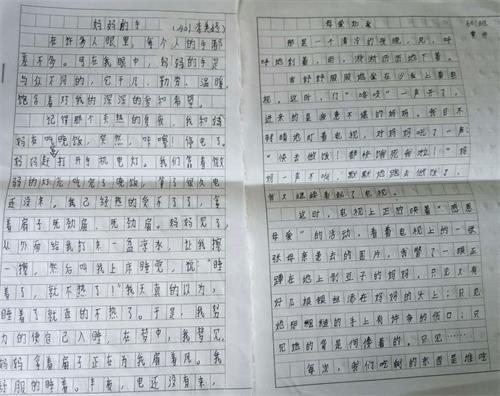 妈妈的手
(1401 李美婷)
在许多人眼里，每个人的手都
差不多。可在我眼中，妈妈的手是
与众不同的，它平凡、勤劳、温暖，
饱含着对我的深深的爱和希望。
记得那个炎热的夜晚，我和妈
妈在吃晚饭，突然，咔嚓！停电了。
妈妈赶打开手机电灯。我们靠着微
弱的灯光吃完了晚饭，等了很久电
还没来。我已经热的受不了了，拿
着扇子死劲扇。妈妈见了，
从外面给我打来一盆凉水，让我擦
一擦，然后叫我上床睡觉，说："睡
着了，就不热了！"我天真的以为，
睡着了就真的不热了。于是，我努
力的使自己入睡，在梦中，我梦见
妈妈拿着扇子正在为我扇着风。我
舒服的睡着。半夜，电还没有来，
母爱如水
那是一个清冷的夜晚，风，呼
呼地刮着，雨，淅淅沥沥地下着。
当我舒舒服服地坐在沙发上看电
视，这时，门"咯吱"一声开了，
进来的是疲惫不堪的妈妈。我目不
转睛地盯着电视，对妈妈吼了一声：
"快去做饭！都快饿死我啦！"妈
妈一声不吭，默默地跑去做饭了，
而我又继续看起了电视。
这时，电视上正放映着"感恩
母爱"的活动，看着电视上的一张
张母亲老去的图片，我瞥了一眼正
蹲在地上剥豆子的妈妈，只见又有
好几根银丝添在妈妈的头上；只见
她那粗糙的手上有许多的伤口；只
见她的背是佝偻着的，只见……
每次，我们吃剩的东西是谁吃